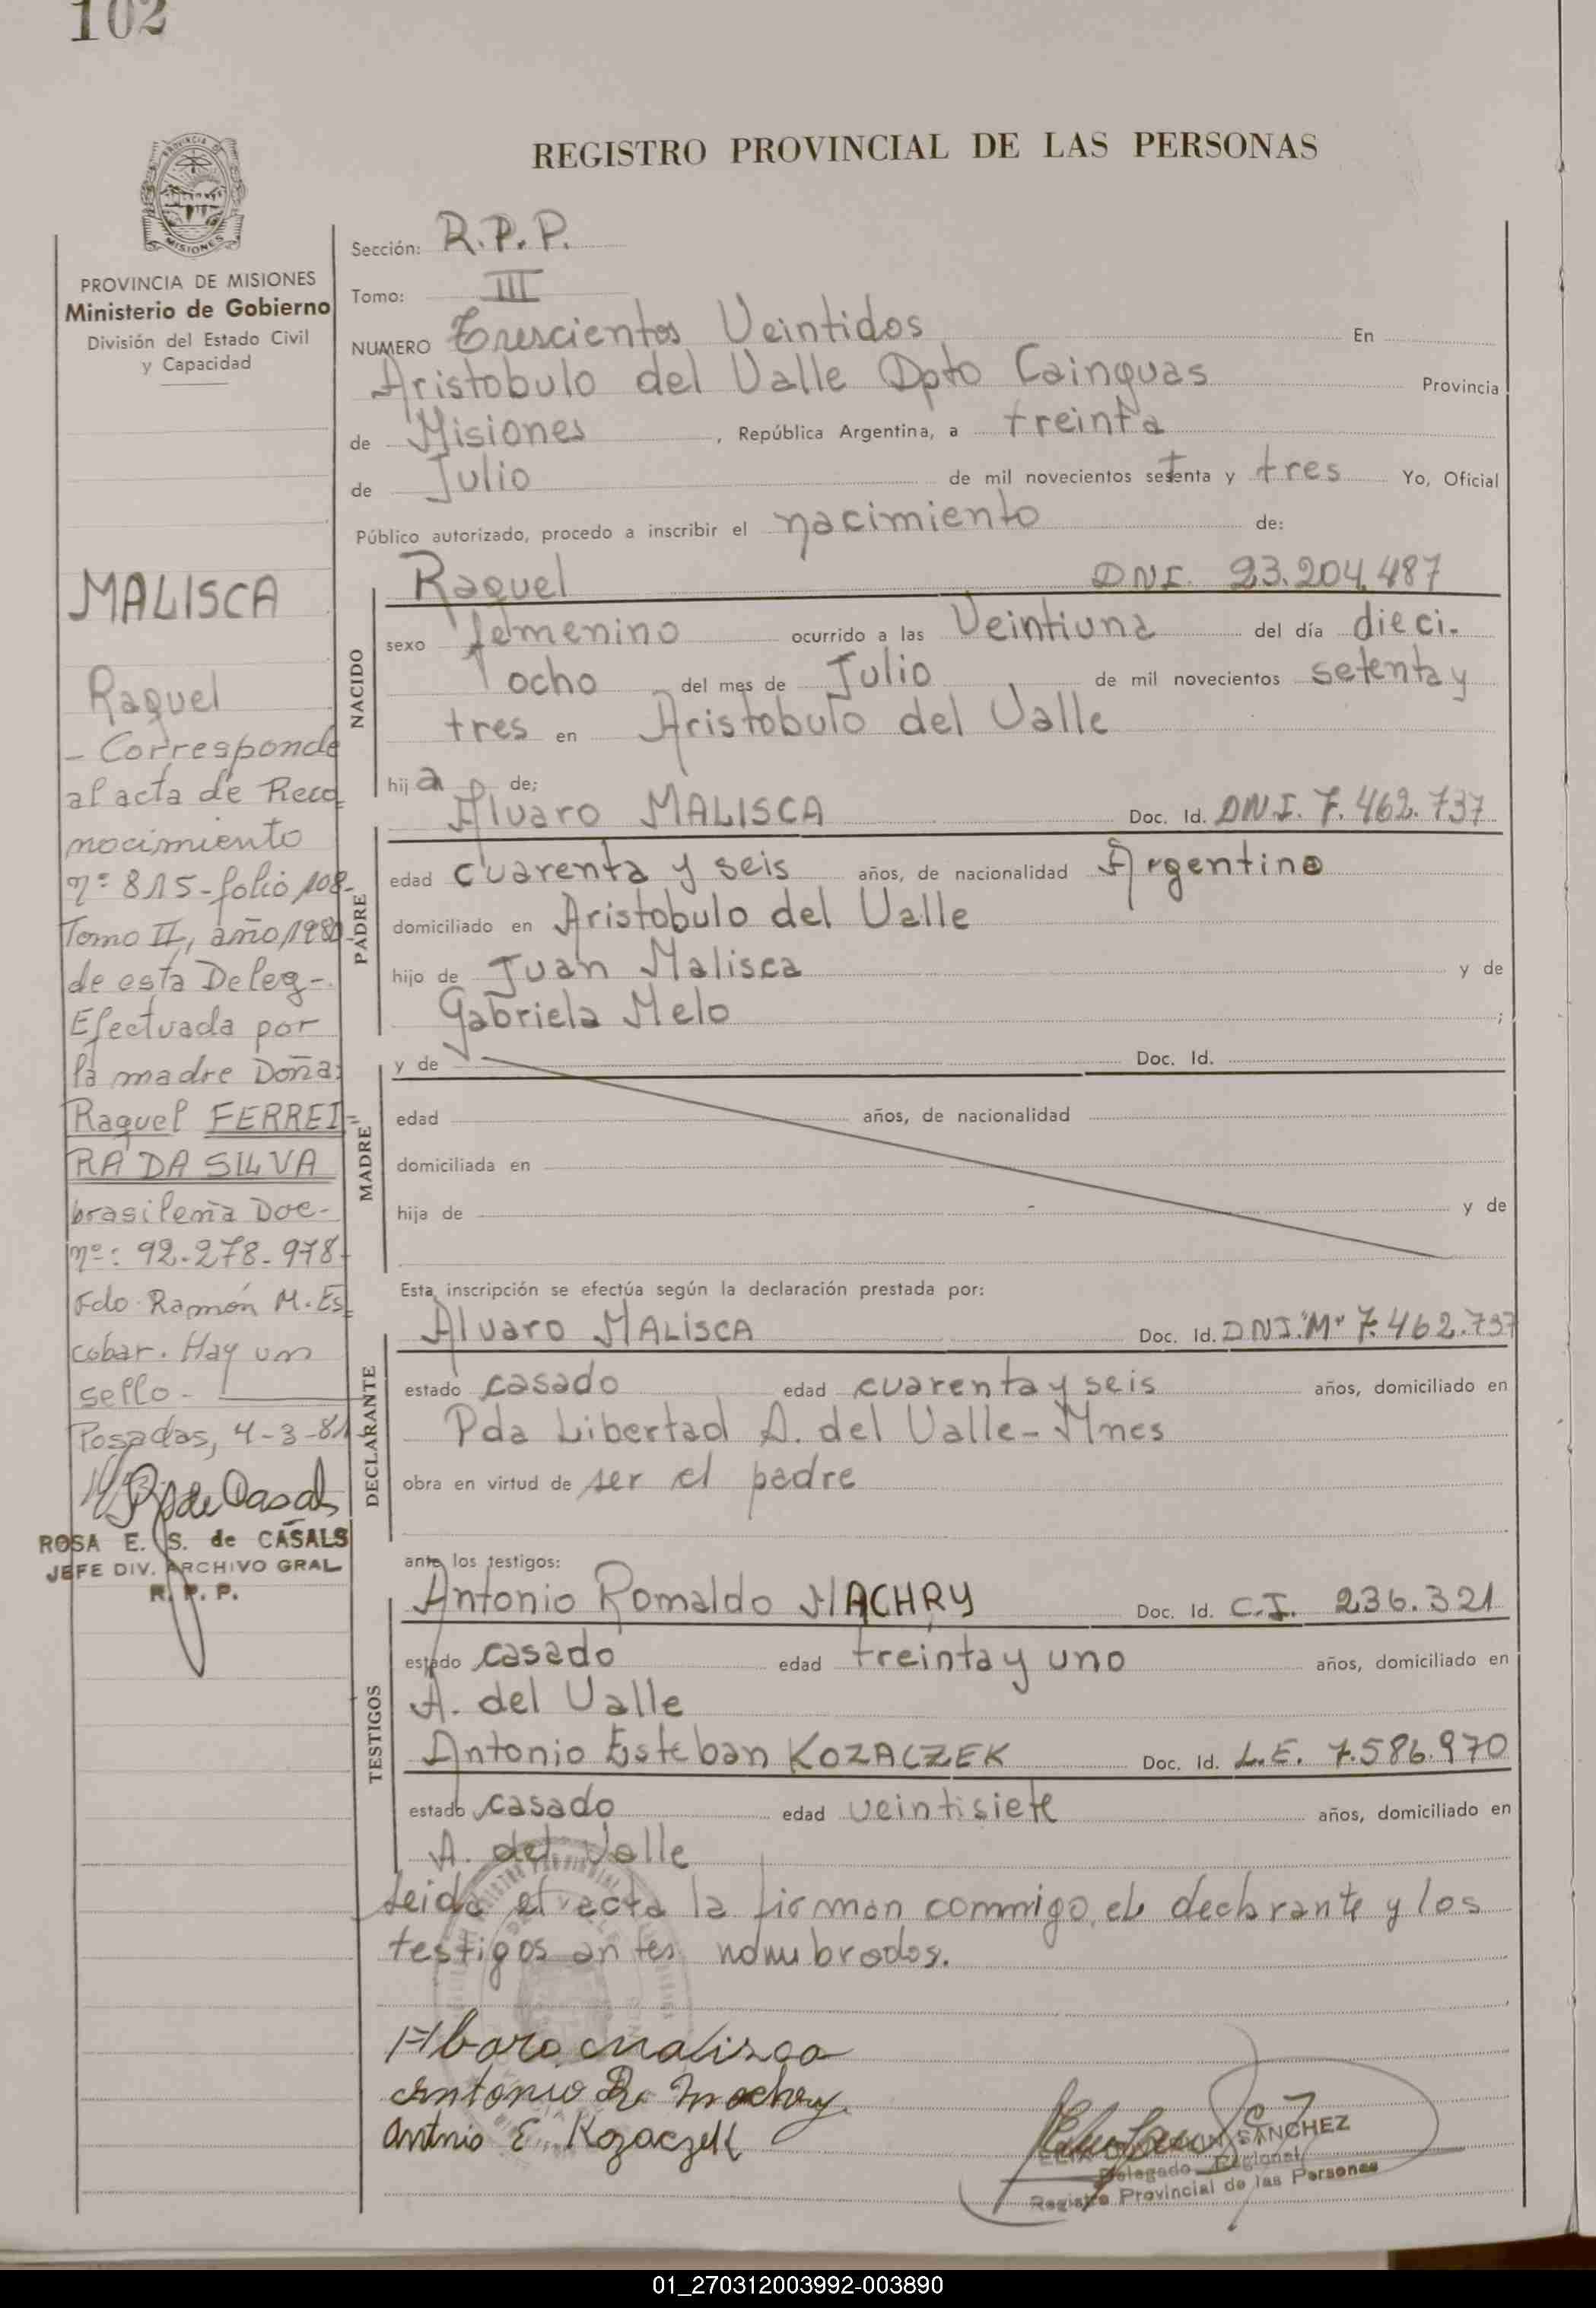 102
REGISTRO PROVINCIAL DE LAS PERSONAS
PROVINCIA DE MISIONES
Ministerio de Gobierno
División del Estado Civil
y Capacidad
MALISCA
Raquel
- Corresponde
al acta de Reco
nocimiento
nº 815 - folio 108-
Tomo II, año 1980
de esta Deleg-
Efectuada por
la madre Doña:
Raquel FERREI=
RA DA SILVA
brasileña Doc-
nº: 92-278-978-
Fdo. Ramón M. Es
cobar. Hay un
sello -
Posadas, 4-3-81
ROSA E. S. de CASALS
JEFE DIV. ARCHIVO GRAL
R. P. P.
Sección: R.P.P.
Tomo: III
NUMERO Trescientos Veintidos En
Aristobulo del Valle Dpto Cainguas Provincia
de Misiones , República Argentina, a treinta
de Julio de mil novecientos setenta y tres Yo, Oficial
Público autorizado, procedo a inscribir el nacimiento de:
NACIDO
Raquel DNI. 23.204.487
sexo femenino ocurrido a las Veintiuna del día dieci-
ocho del mes de Julio de mil novecientos setenta y
tres en Aristobulo del Valle
hija de;
PADRE
Alvaro MALISCA Doc. Id. DNI. 7.462.737
edad cuarenta y seis años, de nacionalidad Argentino
domiciliado en Aristobulo del Valle
hijo de Juan Malisca y de
Gabriela Melo ;
MADRE
y de Doc. Id.
edad años, de nacionalidad
domiciliada en
hija de y de
Esta inscripción se efectúa según la declaración prestada por:
DECLARANTE
Alvaro MALISCA Doc. Id. DNI."M" 7.462.737
estado casado edad cuarenta y seis años, domiciliado en
Pda Libertad A. del Valle - Mnes
obra en virtud de ser el padre
ante los testigos:
TESTIGOS
Antonio Romaldo MACHRY Doc. Id. C.I. 236.321
estado casado edad treinta y uno años, domiciliado en
A. del Valle
Antonio Esteban KOZACZEK Doc. Id. L.E. 7.586.970
estado casado edad veintisiete años, domiciliado en
A. del Valle
Leida el acta la firman conmigo, el declarante y los
testigos antes nombrados.
Albaro Malisca
Antonio R. Machry
Antonio E. Kozaczek
SANCHEZ
Delegado Regional
Registro Provincial de las Personas
01_270312003992-003890